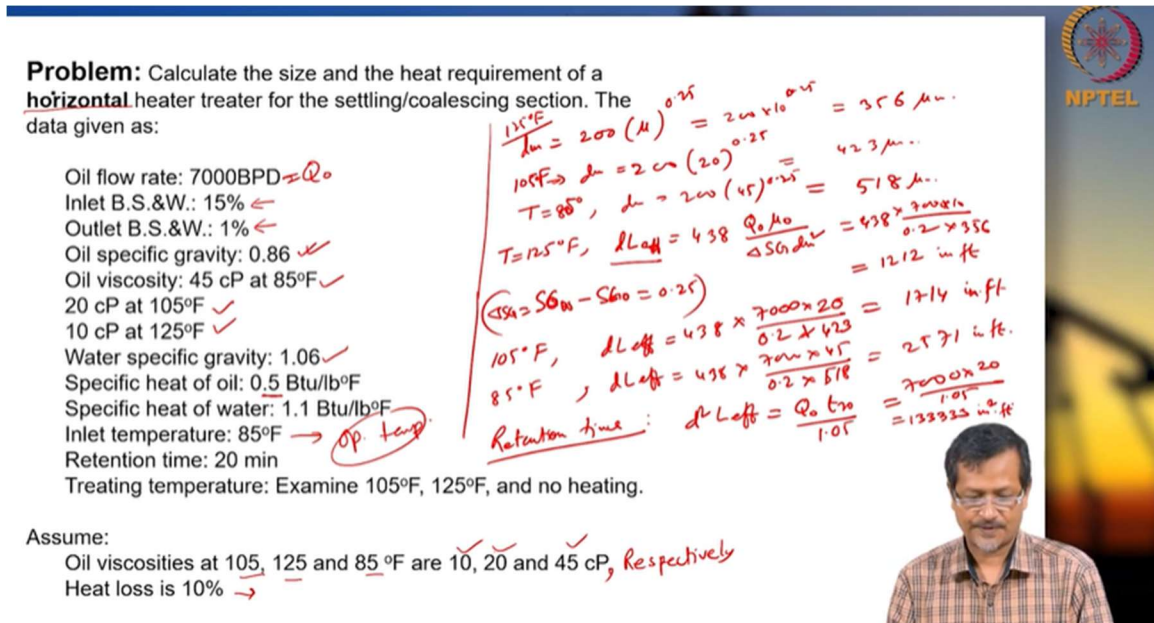 NPTEL
Problem: Calculate the size and the heat requirement of a
horizontal heater treater for the settling/coalescing section. The
data given as:
Oil flow rate: 7000BPD = Qo
Inlet B.S.&W.: 15% ←
Outlet B.S.&W.: 1% ←
Oil specific gravity: 0.86 ✓
Oil viscosity: 45 cP at 85ºF ✓
20 cP at 105ºF ✓
10 cP at 125ºF ✓
Water specific gravity: 1.06 ✓
Specific heat of oil: 0.5 Btu/lbºF
Specific heat of water: 1.1 Btu/lbºF
Inlet temperature: 85ºF → Op. temp.
Retention time: 20 min
Treating temperature: Examine 105ºF, 125ºF, and no heating.
Assume:
Oil viscosities at 105, 125 and 85 ºF are 10, 20 and 45 cP, Respectively
Heat loss is 10% →
125°F
dm = 200 (μ)^0.25 = 200 x 10^0.25 = 356 μm.
105°F → dm = 200 (20)^0.25 = 423 μm.
T=85°, dm = 200 (45)^0.25 = 518 μm.
T=125°F, dLeff = 438 Qo μo / ΔSG dm² = 438 x 7000x10 / 0.2 x 356
= 1212 in ft
(ΔSG = SGw - SGo = 0.25)
105°F, dLeff = 438 x 7000x20 / 0.2 x 423 = 1714 in.ft
85°F, dLeff = 438 x 7000 x 45 / 0.2 x 518 = 2571 in ft.
Retention time: d²Leff = Qo tro / 1.05 = 7000x20 / 1.05
= 133333 in².ft